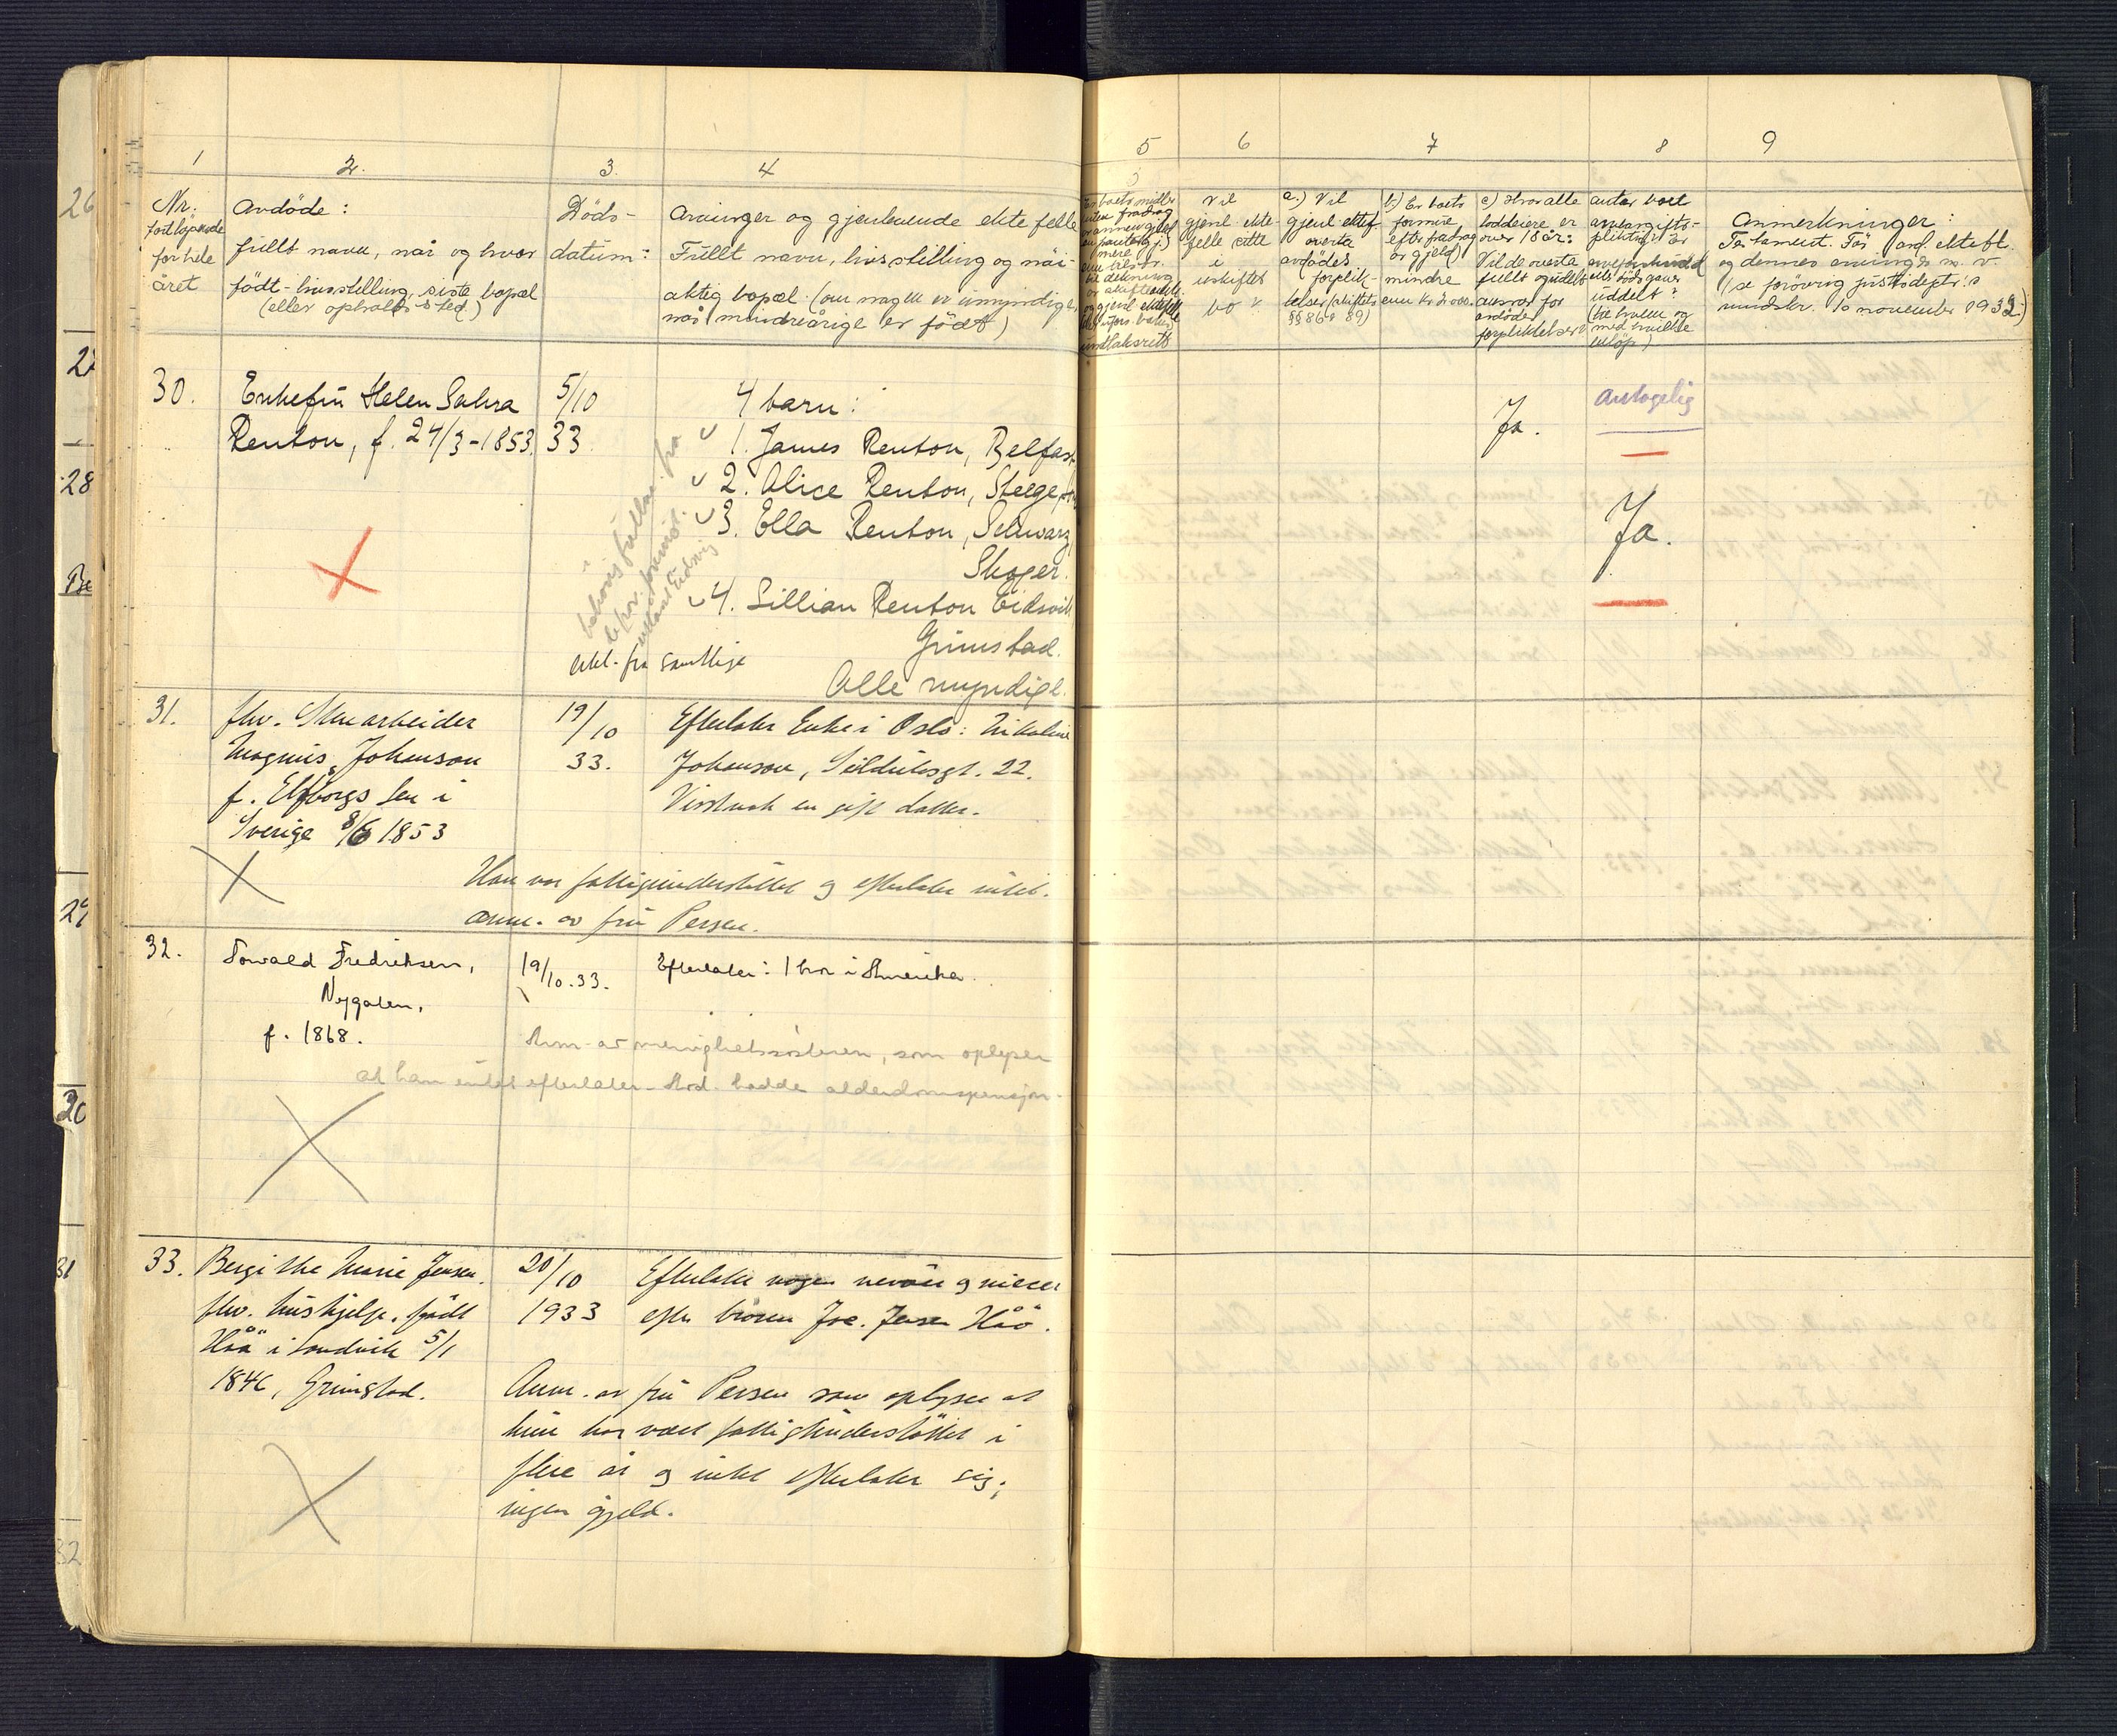 1 2. 3. 4 5 6 7 8 9
Nr.
fortløpende
for hele
året
Avdöde:
fullt navn, når og hvor
født - livsstilling, siste bopæl
(eller opholdssted)
Döds-
datum:
Arvinger og gjenlevende ekte felle
Fullt navn, livsstilling og nöi-
aktig bopæl. (om nogen er umyndige,
når mindreårige er født)
Vil
gjenl. ekte-
felle sitte
i
uskiftet
bo?
a.) Vil
gjenl. ektef.
overta
avdödes
forplik-
telser (skiftel.
§§ 86 o 89)
b.) Er boets
formue
efter fradrag
av gjeld
mindre
enn kr.
c.) Hvor alle
loddeiere er
over 18 år:
Vil de overta
fullt og udelt
ansvar for
avdödes
forpliktelser?
Antar boet
arveavgifts-
pliktig? Er
arveforskudd
eller dödsgaver
uddelt?
(til hvem og
med hvilke
beløp)
Anmerkninger:
Testament. Før avd. ektef.
og dennes arvinger m. v.
(se forøvrig justisdeptr.s
rundskr. 10 november 1932)
30.
Enkefru Helen Sahra
Renton, f. 24/3-1853.
5/10
33.
4 barn:
1. James Renton, Belfast
2. Alice Renton,
3. Ella Renton, Schwarz,
Skoger.
4. Lillian Renton Eidsvik
Grimstad.
Alle myndige.
fra samtlige
Ja.
antagelig
Ja.
31.
fhv. Stenarbeider
Magnus Johanson
f. Elfborgs len i
Sverige 8/6 1853
19/10
33.
Efterlater Enke i Oslo: Nikoline
Johanson, 22.
Visstnok en gift datter.
Han var fattigunderstøttet og efterlater intet.
Anm. av fru Persen.
32.
Torvald Fredriksen,
Nygaten,
f. 1868.
19/10.33.
Efterlater: 1 bror i Amerika.
Anm. av menighetssøsteren, som oplyser
at han intet efterlater. Avd. hadde alderdomspensjon.
33.
Bergithe Marie Jensen.
fhv. hushjelp. født
Håö i Landvik 5/1
1846, Grimstad.
20/10
1933
Efterlater nogen nevöer og niecer
efter broren Joe. Jensen Håö.
Anm. av fru Persen som oplyser at
hun har vært fattigunderstøttet i
flere år og intet efterlater sig;
ingen gjeld.
26
27
28
29
30
31
32